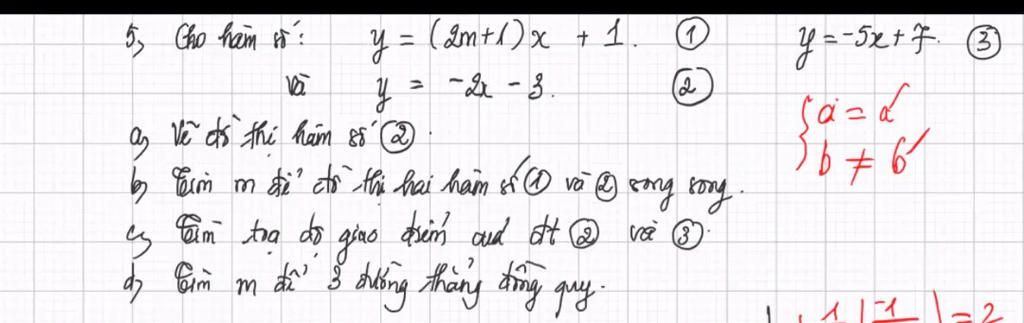 5, Cho hàm số: y = (2m+1)x + 1. ① y = -5x + 7. ③
và y = -2x - 3. ②
{ a = a'
b ≠ b'
a, Vẽ đồ thị hàm số ②.
b, Tìm m để đồ thị hai hàm số ① và ② song song.
c, Tìm tọa độ giao điểm của đt ② và ③.
d, Tìm m để 3 đường thẳng đồng quy.